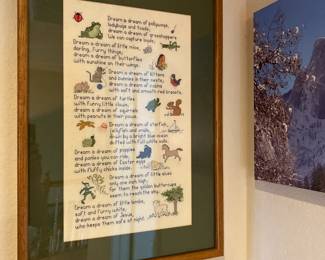 Dream a dream of pollywogs,
ladybugs and toads,
dream a dream of grasshoppers
We can capture loads.
Dream a dream of little mice,
daring, furry things;
dream a dream of butterflies
with sunshine on their wings.
Dream a dream of kittens
and bunnies in their nests;
dream a dream of robins
with soft and smooth red breasts.
Dream a dream of turtles
with funny little claws;
dream a dream of squirrels
with peanuts in their paws.
Dream a dream of starfish,
jellyfish and snails,
dream by a bright blue ocean
dotted with full white sails.
Dream a dream of puppies
and ponies you can ride;
dream a dream of Easter eggs
with fluffy chicks inside.
Dream a dream of little elves
only one inch high;
for them the golden buttercups
seem to reach the sky.
Dream a dream of little lambs,
soft and furry white,
dream a dream of Jesus,
who keeps them safe at night.